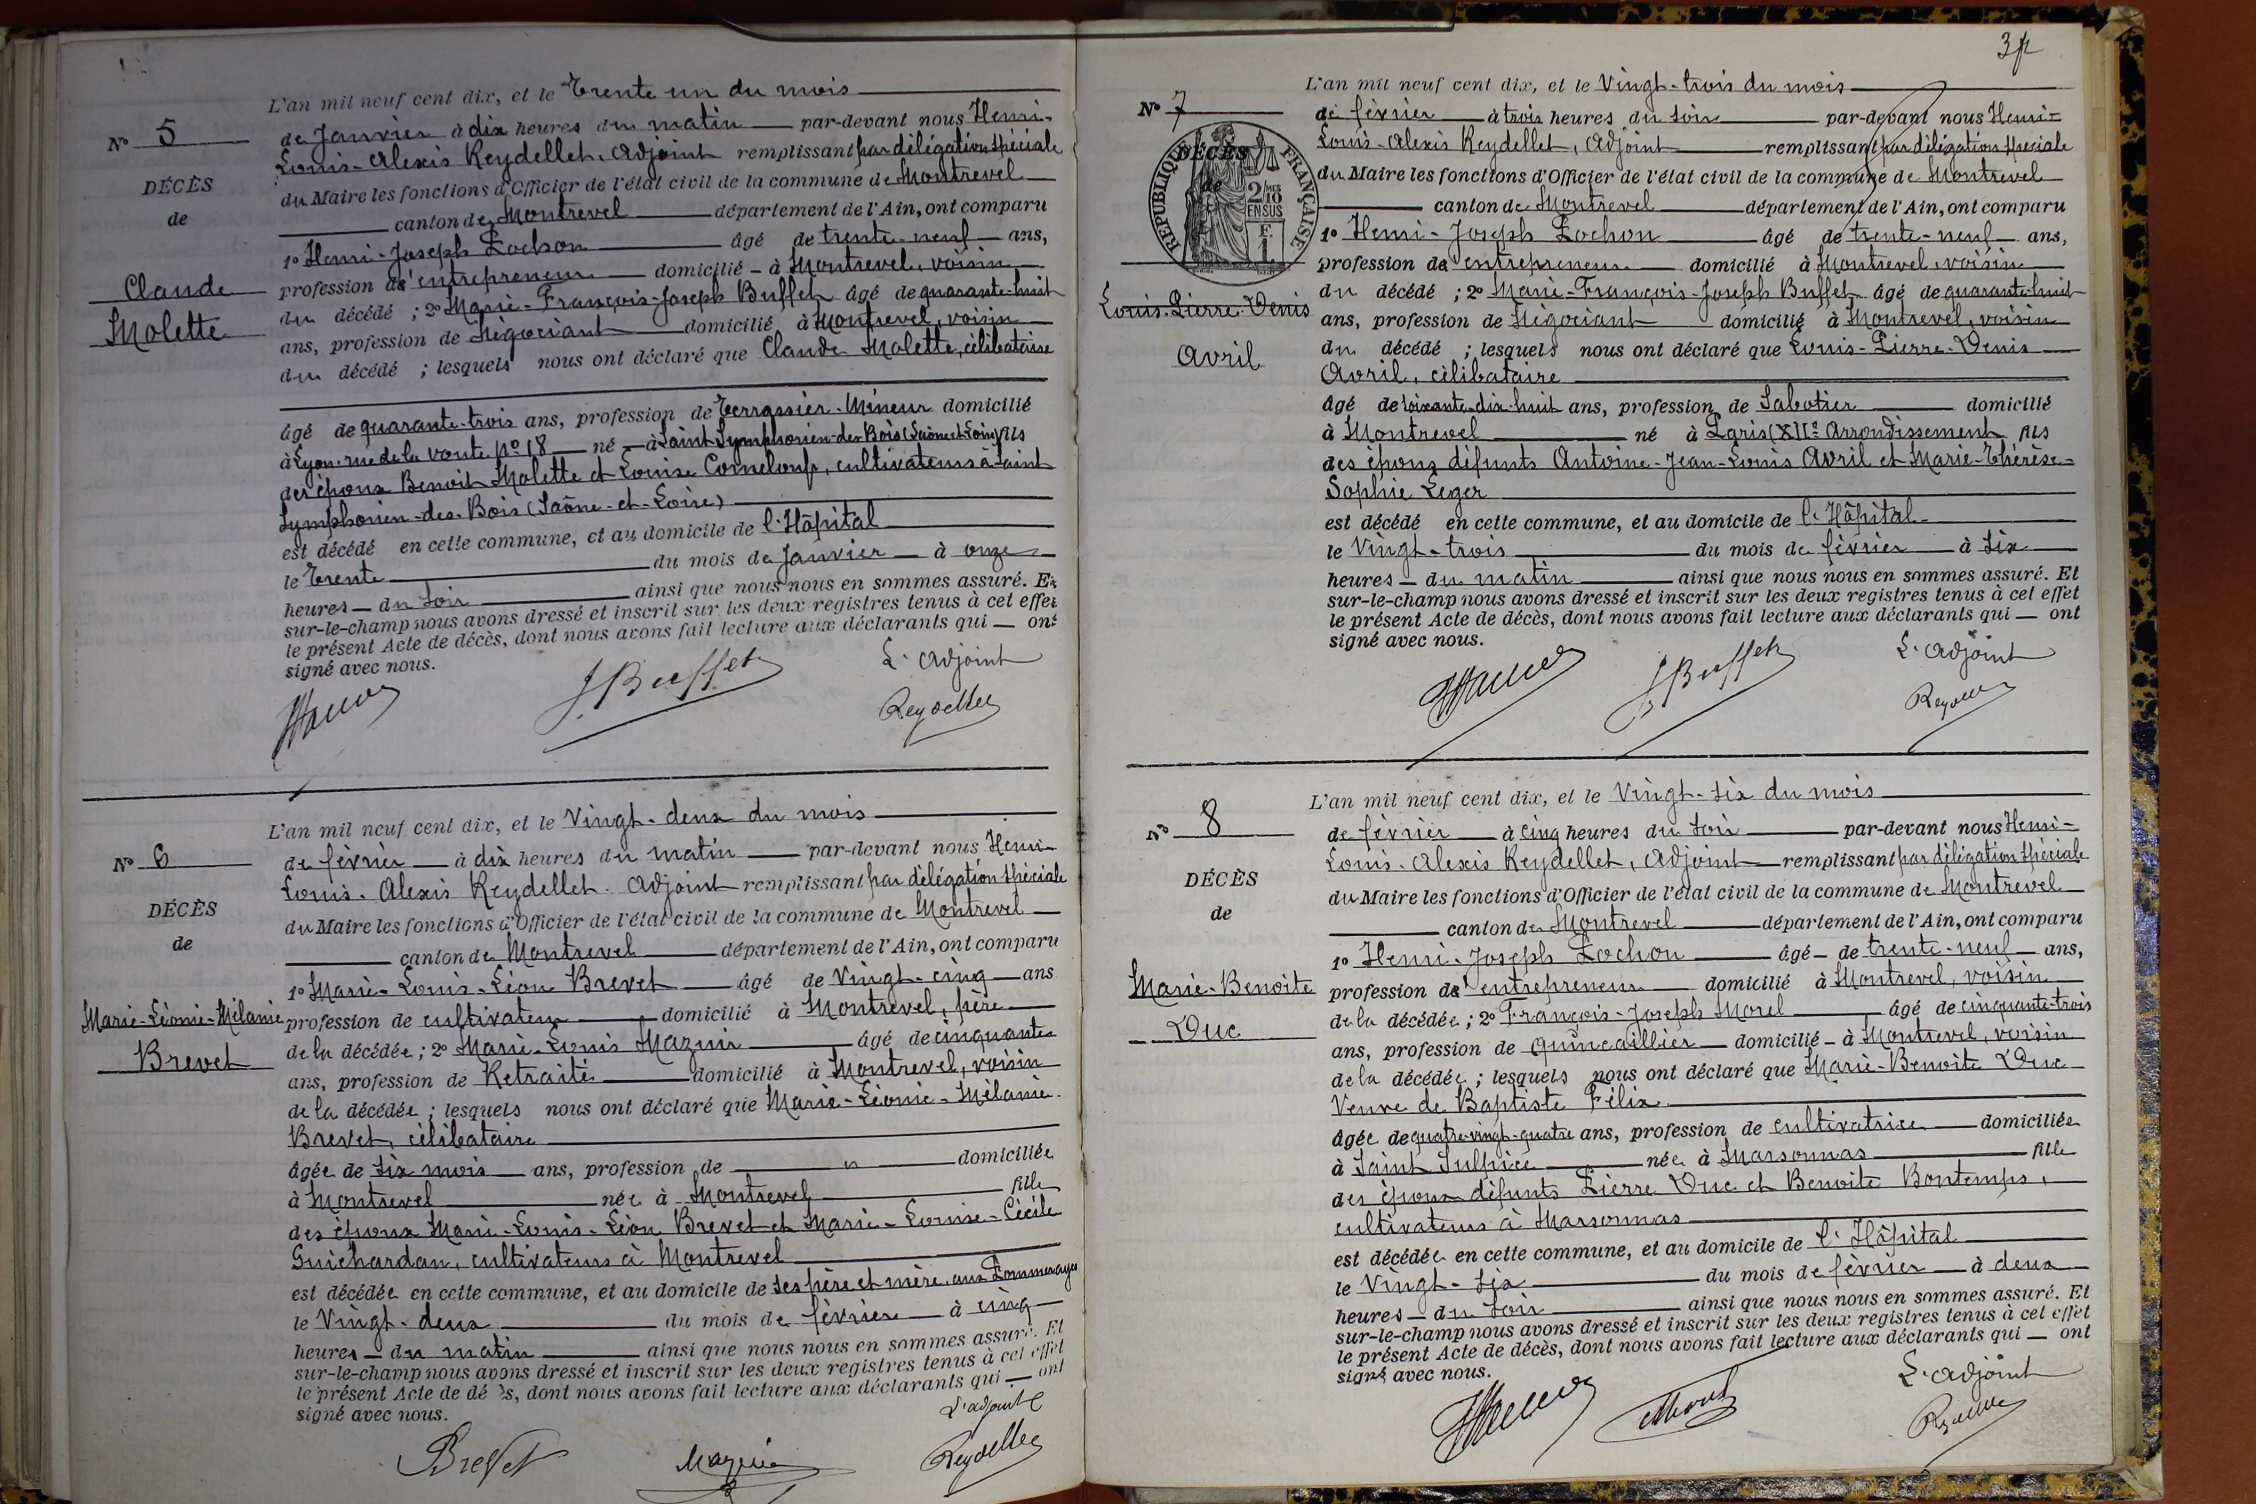 L'an mil neuf cent dix, et le Trente un du mois
N° 5
de Janvier à dix heures du matin par-devant nous Henri-
Louis-Alexis Reydellet, Adjoint remplissant par délégation spéciale
DÉCÈS
du Maire les fonctions d'Officier de l'état civil de la commune de Montrevel
de
canton de Montrevel département de l'Ain, ont comparu
1° Henri-Joseph Lochon âgé de trente-neuf ans,
Claude
profession d'entrepreneur domicilié à Montrevel, voisin
Molette
du décédé ; 2° Marie-François-Joseph Buffet âgé de quarante-huit
ans, profession de Négociant domicilié à Montrevel, voisin
du décédé ; lesquels nous ont déclaré que Claude Molette, célibataire
âgé de quarante-trois ans, profession de Terrassier-Mineur domicilié
à Lyon, rue de la vonte N° 18 né à Saint Symphorien-des-Bois (Saône et Loire) fils
des époux Benoit Molette et Louise Corneloup, cultivateurs à Saint
Symphorien-des-Bois (Saône-et-Loire)
est décédé en cette commune, et au domicile de l'Hôpital
le Trente du mois de Janvier à onze
heures du soir ainsi que nous nous en sommes assuré. Et
sur-le-champ nous avons dressé et inscrit sur les deux registres tenus à cet effet
le présent Acte de décès, dont nous avons fait lecture aux déclarants qui ont
signé avec nous.
L'adjoint
J Buffet
Reydellet
L'an mil neuf cent dix, et le Vingt-deux du mois
N° 6
de février à dix heures du matin par-devant nous Henri-
Louis-Alexis Reydellet. Adjoint remplissant par délégation spéciale
DÉCÈS
du Maire les fonctions d'Officier de l'état civil de la commune de Montrevel
de
canton de Montrevel département de l'Ain, ont comparu
1° Marie-Louis-Léon Brevet âgé de Vingt-cinq ans
Marie-Léonie-Mélanie
profession de cultivateur domicilié à Montrevel, père
Brevet
de la décédée ; 2° Marie-Louis Mazuir âgé de cinquante
ans, profession de Retraité domicilié à Montrevel, voisin
de la décédée ; lesquels nous ont déclaré que Marie-Léonie-Mélanie
Brevet, célibataire
âgée de six mois ans, profession de " domiciliée
à Montrevel née à Montrevel fille
des époux Marie-Louis-Léon Brevet et Marie-Louise-Cécile
Guichardan, cultivateurs à Montrevel
est décédée en cette commune, et au domicile de ses père et mère, aux Pommerayes
le Vingt-deux du mois de février à cinq
heures du matin ainsi que nous nous en sommes assuré. Et
sur-le-champ nous avons dressé et inscrit sur les deux registres tenus à cet effet
le présent Acte de décès, dont nous avons fait lecture aux déclarants qui ont
signé avec nous.
L'adjoint
Brevet
Mazuir
Reydellet
3
L'an mil neuf cent dix, et le Vingt-trois du mois
N° 7
de février à trois heures du soir par-devant nous Henri-
Louis-Alexis Reydellet, Adjoint remplissant par délégation spéciale
RÉPUBLIQUE FRANÇAISE
2/10 EN SUS
F. 1
DÉCÈS
de
du Maire les fonctions d'Officier de l'état civil de la commune de Montrevel
canton de Montrevel département de l'Ain, ont comparu
1° Henri-Joseph Lochon âgé de trente-neuf ans,
profession d'entrepreneur domicilié à Montrevel, voisin
Louis-Pierre-Denis
du décédé ; 2° Marie-François-Joseph Buffet âgé de quarante-huit
ans, profession de Négociant domicilié à Montrevel, voisin
Avril
du décédé ; lesquels nous ont déclaré que Louis-Pierre-Denis
Avril, célibataire
âgé de soixante-dix-huit ans, profession de Sabotier domicilié
à Montrevel né à Paris (XIIe Arrondissement fils
des époux défunts Antoine-Jean-Louis Avril et Marie-Thérèse-
Sophie Leger
est décédé en cette commune, et au domicile de l'Hôpital
le Vingt-trois du mois de février à six
heures du matin ainsi que nous nous en sommes assuré. Et
sur-le-champ nous avons dressé et inscrit sur les deux registres tenus à cet effet
le présent Acte de décès, dont nous avons fait lecture aux déclarants qui ont
signé avec nous.
L'adjoint
J Buffet
L'an mil neuf cent dix, et le Vingt-six du mois
N° 8
de février à cinq heures du soir par-devant nous Henri-
Louis-Alexis Reydellet, Adjoint remplissant par délégation spéciale
DÉCÈS
du Maire les fonctions d'Officier de l'état civil de la commune de Montrevel
de
canton de Montrevel département de l'Ain, ont comparu
1° Henri-Joseph Lochon âgé de trente-neuf ans,
Marie-Benoite
profession d'entrepreneur domicilié à Montrevel, voisin
Duc
de la décédée ; 2° François-Joseph Morel âgé de cinquante-trois
ans, profession de quincaillier domicilié à Montrevel, voisin
de la décédée ; lesquels nous ont déclaré que Marie-Benoite Duc
Veuve de Baptiste Félix
âgée de quatre-vingt-quatre ans, profession de cultivatrice domiciliée
à Saint Sulpice née à Marsonnas fille
des époux défunts Pierre Duc et Benoite Bontemps,
cultivateurs à Marsonnas
est décédée en cette commune, et au domicile de l'Hôpital
le Vingt-six du mois de février à deux
heures du soir ainsi que nous nous en sommes assuré. Et
sur-le-champ nous avons dressé et inscrit sur les deux registres tenus à cet effet
le présent Acte de décès, dont nous avons fait lecture aux déclarants qui ont
signé avec nous.
L'adjoint